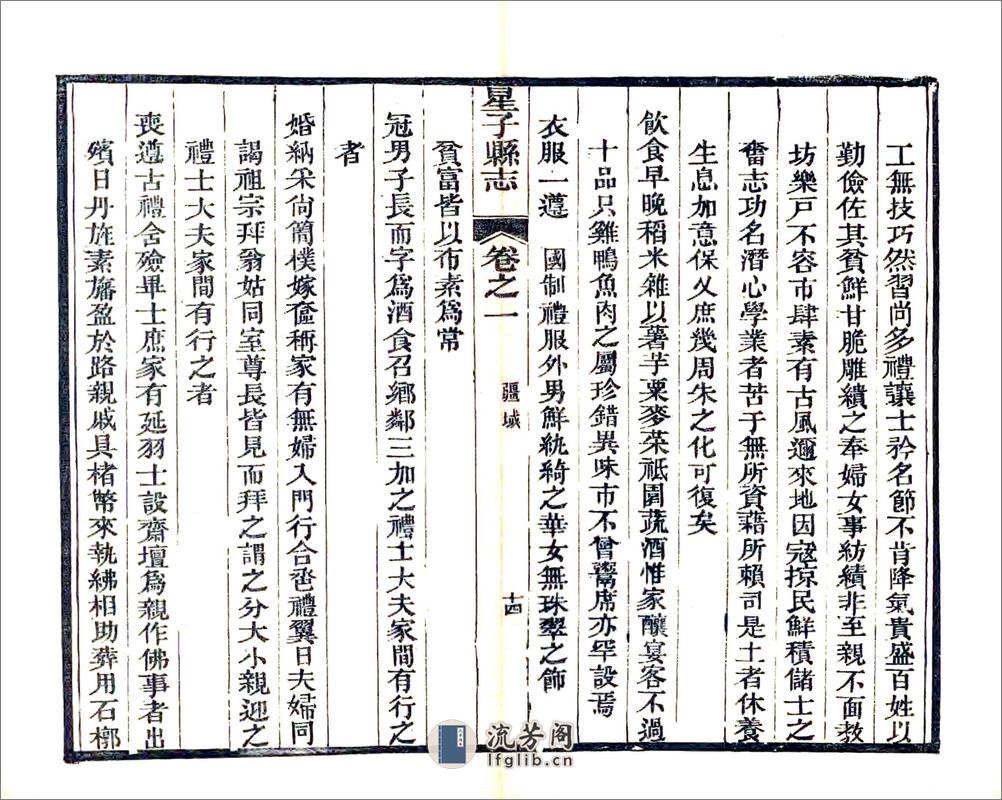 工無技巧然習尚多禮讓士矜名節不肯降氣貴盛百姓以
勤儉佐其貧鮮甘脆雕繢之奉婦女事紡績非至親不面教
坊樂戸不容市肆素有古風邇來地因寇掠民鮮積儲士之
奮志功名潛心學業者苦于無所資藉所賴司是土者休養
生息加意保乂庶幾周朱之化可復矣
飲食早晚稻米雜以薯芋粟麥菜祗園蔬酒惟家釀宴客不過
十品只雞鴨魚肉之屬珍錯異味市不曾鬻席亦罕設焉
衣服一遵 國制禮服外男鮮紈綺之華女無珠翠之飾
貧富皆以布素爲常
星子縣志 卷之一 疆域 十四
冠男子長而字爲酒食召鄉鄰三加之禮士大夫家間有行之
者
婚納采尙簡樸嫁奩稱家有無婦入門行合巹禮翼日夫婦同
謁祖宗拜翁姑同室尊長皆見而拜之謂之分大小親迎之
禮士大夫家間有行之者
喪遵古禮含殮畢士庶家有延羽士設齋壇爲親作佛事者出
殯日丹旌素旛盈於路親戚具楮幣來執紼相助葬用石槨
流芳阁
lfglib.cn